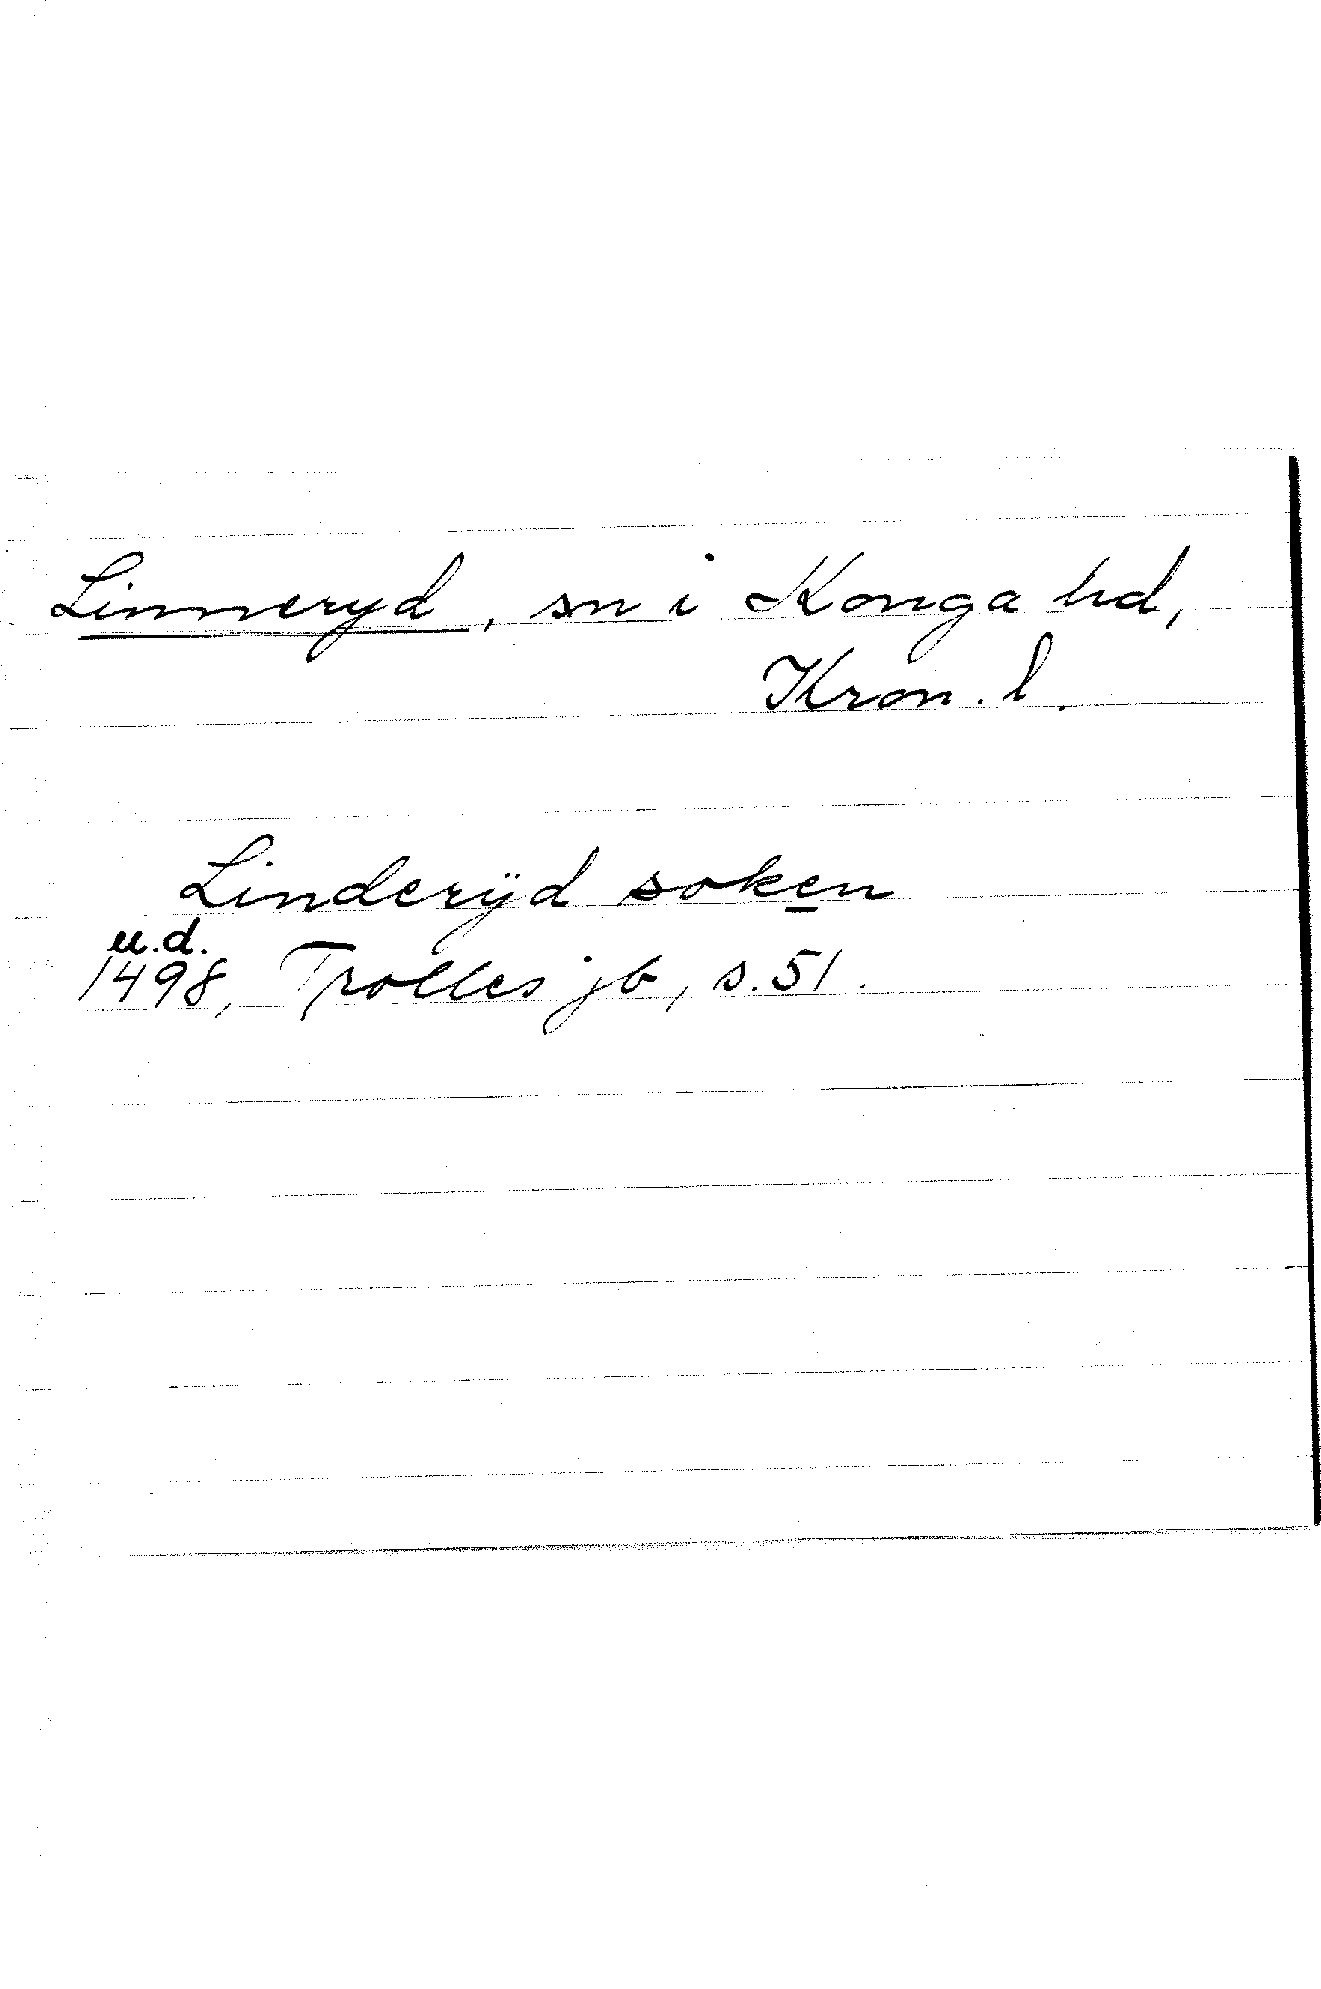 Linneryd, sn i Konga hd,
Kron. l.
Linderÿd soken
u.d.
1498, Trolles jb, s. 51.